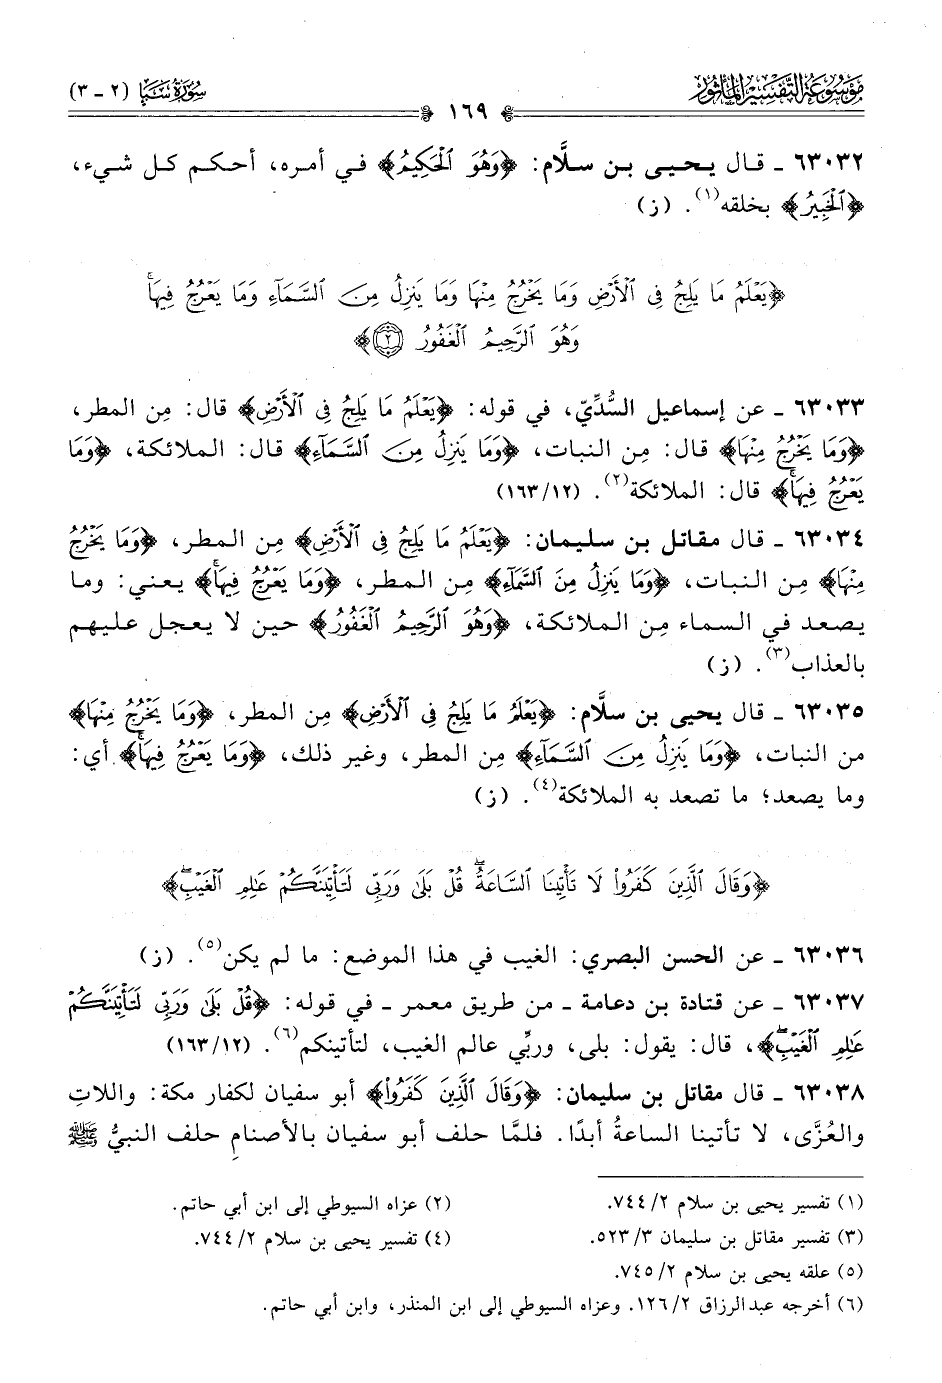 مَوْسُوعَةُ التَّفْسِيْرِ المَأْثُورِ
سُورَةُ سَبَإٍ (٢ - ٣)
١٦٩
٦٣٠٣٢ ـ قال يـحـيـى بـن سلَّام: ﴿وَهُوَ الْحَكِيمُ﴾ في أمره، أحكم كل شيء،
﴿الْخَبِيرُ﴾ بخلقه(١). (ز)
﴿يَعْلَمُ مَا يَلِجُ فِي الْأَرْضِ وَمَا يَخْرُجُ مِنْهَا وَمَا يَنزِلُ مِنَ السَّمَاءِ وَمَا يَعْرُجُ فِيهَا ۚ
وَهُوَ الرَّحِيمُ الْغَفُورُ ٢﴾
٦٣٠٣٣ ـ عن إسماعيل السُّدِّيّ، في قوله: ﴿يَعْلَمُ مَا يَلِجُ فِي الْأَرْضِ﴾ قال: مِن المطر،
﴿وَمَا يَخْرُجُ مِنْهَا﴾ قال: مِن النبات، ﴿وَمَا يَنزِلُ مِنَ السَّمَاءِ﴾ قال: الملائكة، ﴿وَمَا
يَعْرُجُ فِيهَا ۚ﴾ قال: الملائكة(٢). (١٦٣/١٢)
٦٣٠٣٤ ـ قال مقاتل بن سليمان: ﴿يَعْلَمُ مَا يَلِجُ فِي الْأَرْضِ﴾ مِن المطر، ﴿وَمَا يَخْرُجُ
مِنْهَا﴾ مِن النبات، ﴿وَمَا يَنزِلُ مِنَ السَّمَاءِ﴾ مِن المطر، ﴿وَمَا يَعْرُجُ فِيهَا ۚ﴾ يعني: وما
يصعد في السماء مِن الملائكة، ﴿وَهُوَ الرَّحِيمُ الْغَفُورُ﴾ حين لا يعجل عليهم
بالعذاب(٣). (ز)
٦٣٠٣٥ ـ قال يحيى بن سلَّام: ﴿يَعْلَمُ مَا يَلِجُ فِي الْأَرْضِ﴾ مِن المطر، ﴿وَمَا يَخْرُجُ مِنْهَا﴾
من النبات، ﴿وَمَا يَنزِلُ مِنَ السَّمَاءِ﴾ مِن المطر، وغير ذلك، ﴿وَمَا يَعْرُجُ فِيهَا ۚ﴾ أي:
وما يصعد؛ ما تصعد به الملائكة(٤). (ز)
﴿وَقَالَ الَّذِينَ كَفَرُوا لَا تَأْتِينَا السَّاعَةُ ۖ قُلْ بَلَىٰ وَرَبِّي لَتَأْتِيَنَّكُمْ عَالِمِ الْغَيْبِ ۖ﴾
٦٣٠٣٦ ـ عن الحسن البصري: الغيب في هذا الموضع: ما لم يكن(٥). (ز)
٦٣٠٣٧ ـ عن قتادة بن دعامة ـ من طريق معمر ـ في قوله: ﴿قُلْ بَلَىٰ وَرَبِّي لَتَأْتِيَنَّكُمْ
عَالِمِ الْغَيْبِ ۖ﴾، قال: يقول: بلى، وربِّي عالم الغيب، لتأتينكم(٦). (١٦٣/١٢)
٦٣٠٣٨ ـ قال مقاتل بن سليمان: ﴿وَقَالَ الَّذِينَ كَفَرُوا﴾ أبو سفيان لكفار مكة: واللاتِ
والعُزَّى، لا تأتينا الساعةُ أبدًا. فلمَّا حلف أبو سفيان بالأصنامِ حلف النبيُّ ﷺ
(١) تفسير يحيى بن سلام ٧٤٤/٢.
(٢) عزاه السيوطي إلى ابن أبي حاتم.
(٣) تفسير مقاتل بن سليمان ٥٢٣/٣.
(٤) تفسير يحيى بن سلام ٧٤٤/٢.
(٥) علقه يحيى بن سلام ٧٤٥/٢.
(٦) أخرجه عبدالرزاق ١٢٦/٢. وعزاه السيوطي إلى ابن المنذر، وابن أبي حاتم.